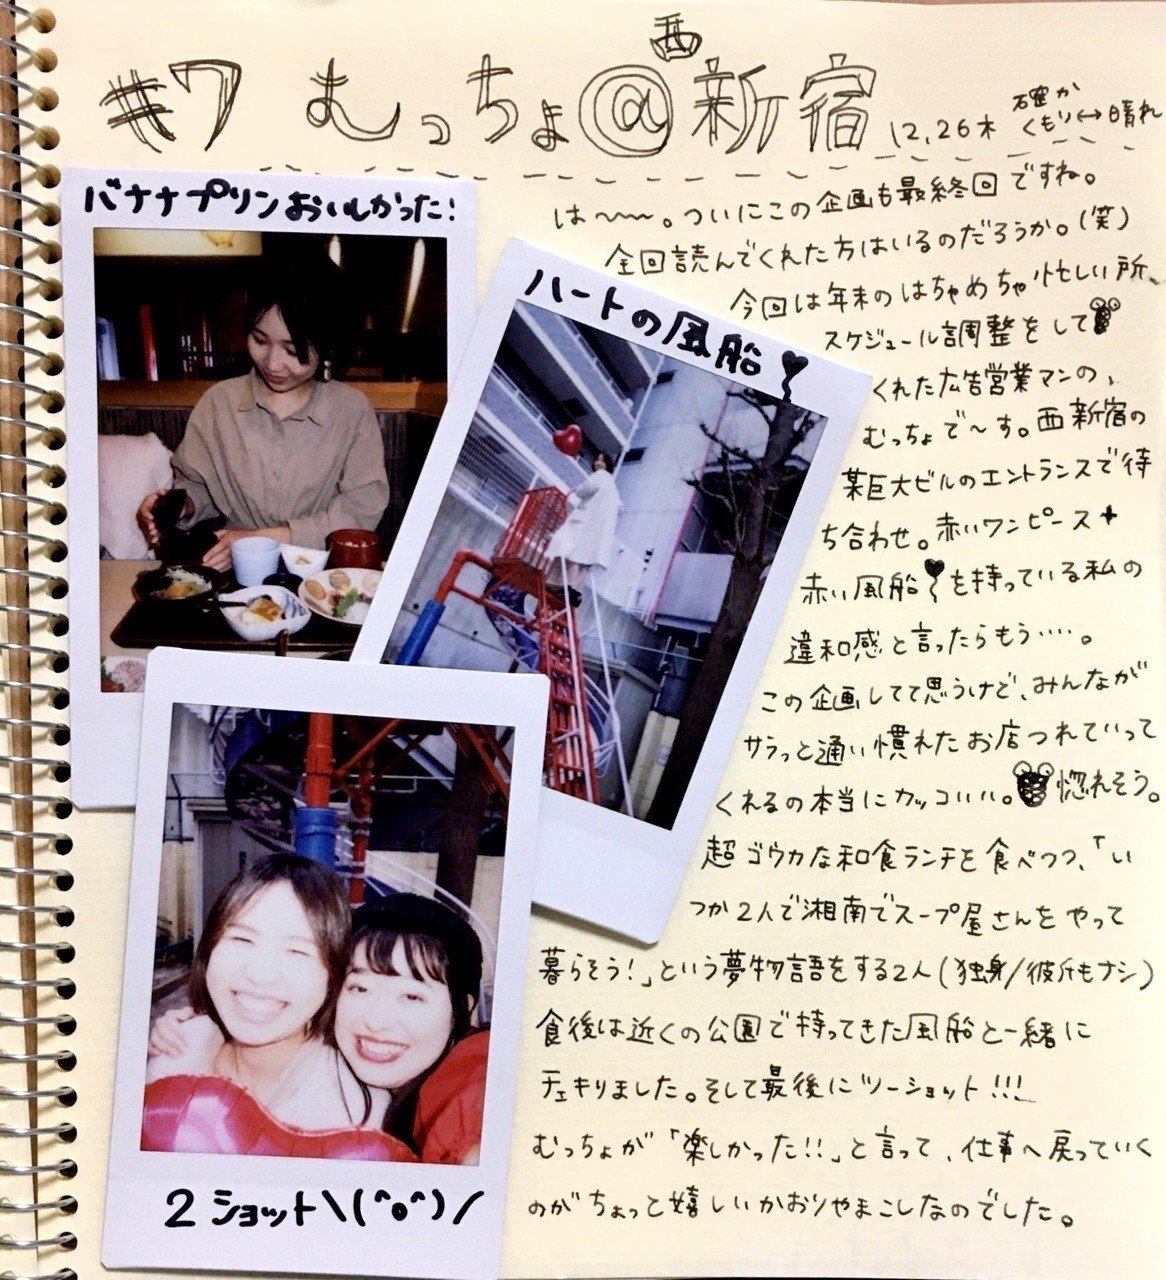 #7 むっちょ@西新宿
12.26木 確か くもり↔晴れ
バナナプリンおいしかった!
ハートの風船
2ショット\(^o^)/
は〜〜。ついにこの企画も最終回ですね。
全回読んでくれた方はいるのだろうか。(笑)
今回は年末のはちゃめちゃ忙しい所、
スケジュール調整をして
くれた広告営業マンの、
むっちょで〜す。西新宿の
某巨大ビルのエントランスで待
ち合わせ。赤いワンピース+
赤い風船を持っている私の
違和感と言ったらもう‥‥。
この企画してて思うけど、みんなが
サラっと通い慣れたお店つれていって
くれるの本当にカッコいい。惚れそう。
超ゴウカな和食ランチを食べつつ、「い
つか2人で湘南でスープ屋さんをやって
暮らそう!」という夢物語をする2人(独身/彼氏もナシ)
食後は近くの公園で持ってきた風船と一緒に
チェキりました。そして最後にツーショット!!!
むっちょが「楽しかった!!」と言って、仕事へ戻っていく
のがちょっと嬉しいかおりやまこしなのでした。